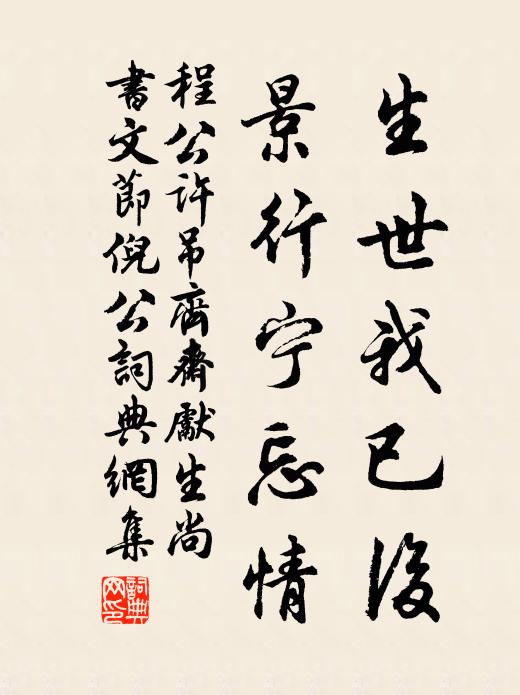 生世我已後
景行宁忘情
程公许吊齊齋獻生尚
書文節倪公詞典網集
詞典网印